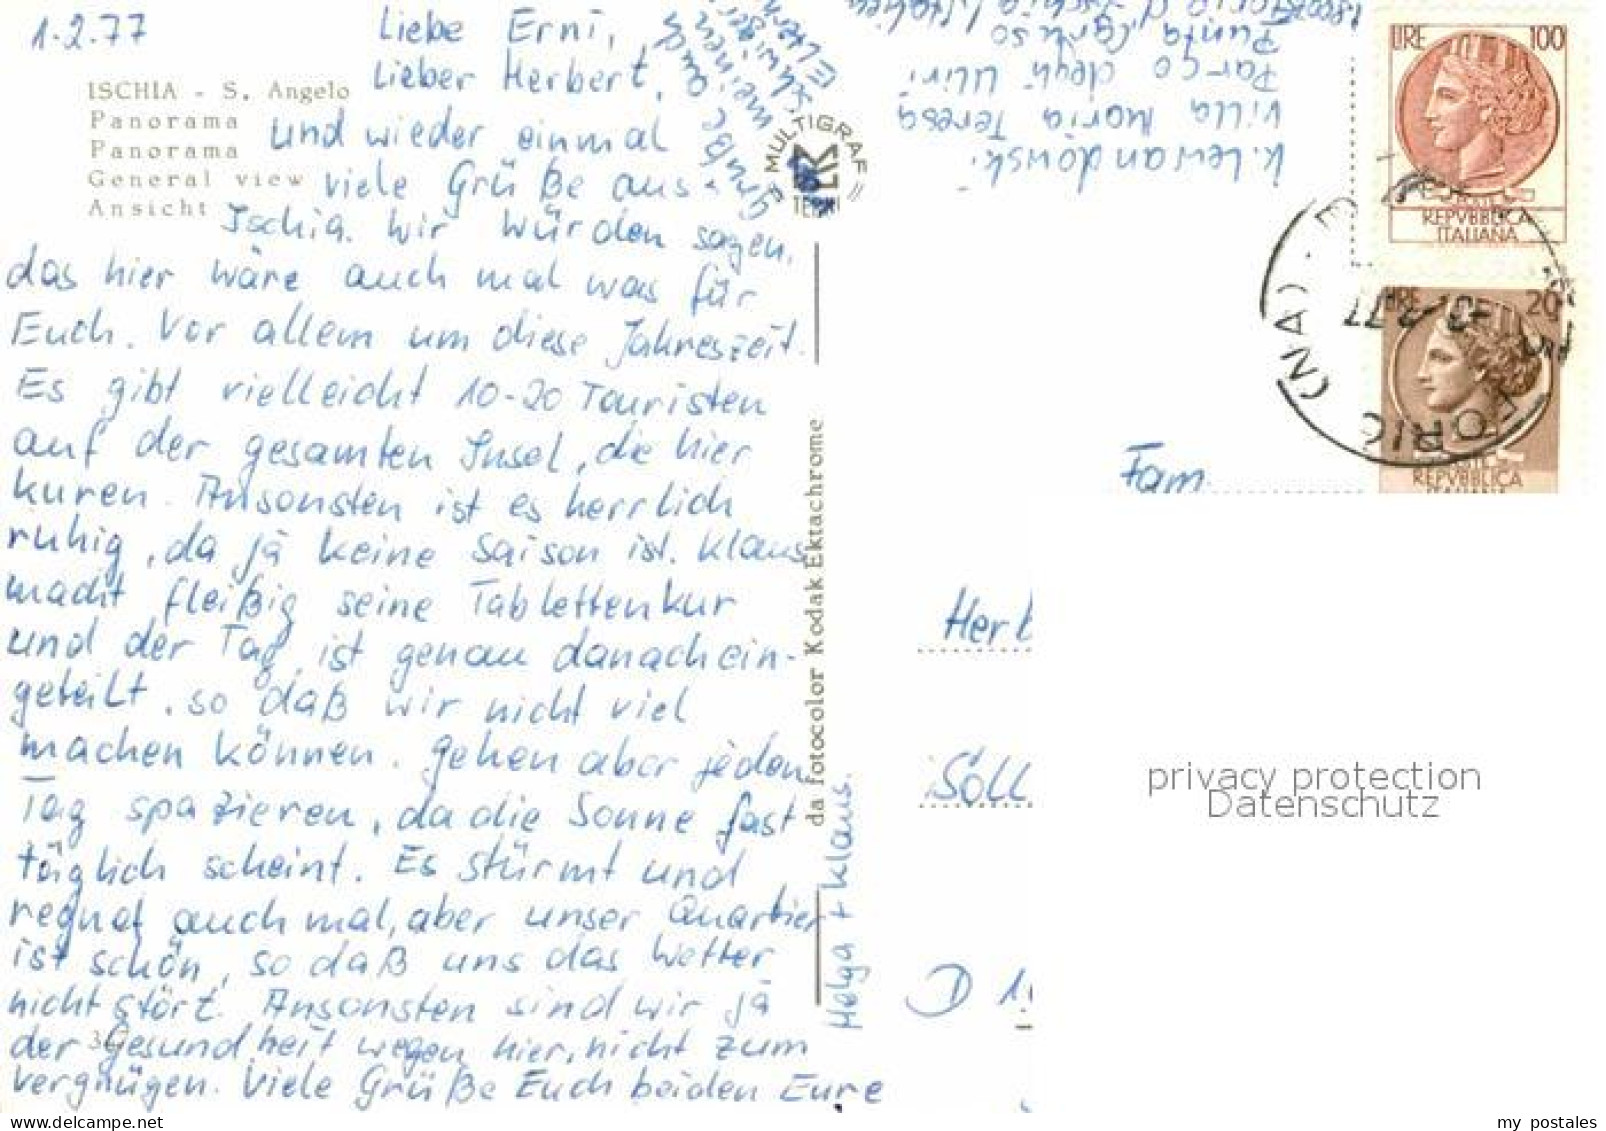 1.2.77
Liebe Erni,
Lieber Herbert,
ISCHIA - S. Angelo
Panorama
Panorama
General view
Ansicht
und wieder einmal
viele Grüße aus
Ischia. Wir würden sagen,
das hier wäre auch mal was für
Euch. Vor allem um diese Jahreszeit.
Es gibt vielleicht 10-20 Touristen
auf der gesamten Insel, die hier
kuren. Ansonsten ist es herrlich
ruhig, da ja keine Saison ist. Klaus
macht fleißig seine Tablettenkur
und der Tag ist genau danach ein-
geteilt, so daß wir nicht viel
machen können. Gehen aber jeden
Tag spazieren, da die Sonne fast
täglich scheint. Es stürmt und
regnet auch mal, aber unser Quartier
ist schön, so daß uns das Wetter
nicht stört. Ansonsten sind wir ja
der Gesundheit wegen hier, nicht zum
Vergnügen. Viele Grüße Euch beiden Eure
Helga + Klaus.
Grüße auch
meine
Eltern
MULTIGRAF
TERNI
da fotocolor Kodak Ektachrome
K. Lewandowski
Villa Maria Teresa
Parco degli Ulivi
Punta Caruso
LIRE 100
REPVBBLICA
ITALIANA
LIRE 20
POSTE
REPVBBLICA
FORIO (NA)
3-2-77
Fam.
Herb
Söll
D 1
privacy protection
Datenschutz
my postales